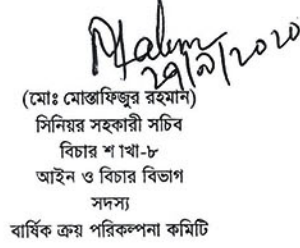 ২৯/৯/২০২০
(মোঃ মোস্তাফিজুর রহমান)
সিনিয়র সহকারী সচিব
বিচার শাখা-৮
আইন ও বিচার বিভাগ
সদস্য
বার্ষিক ক্রয় পরিকল্পনা কমিটি